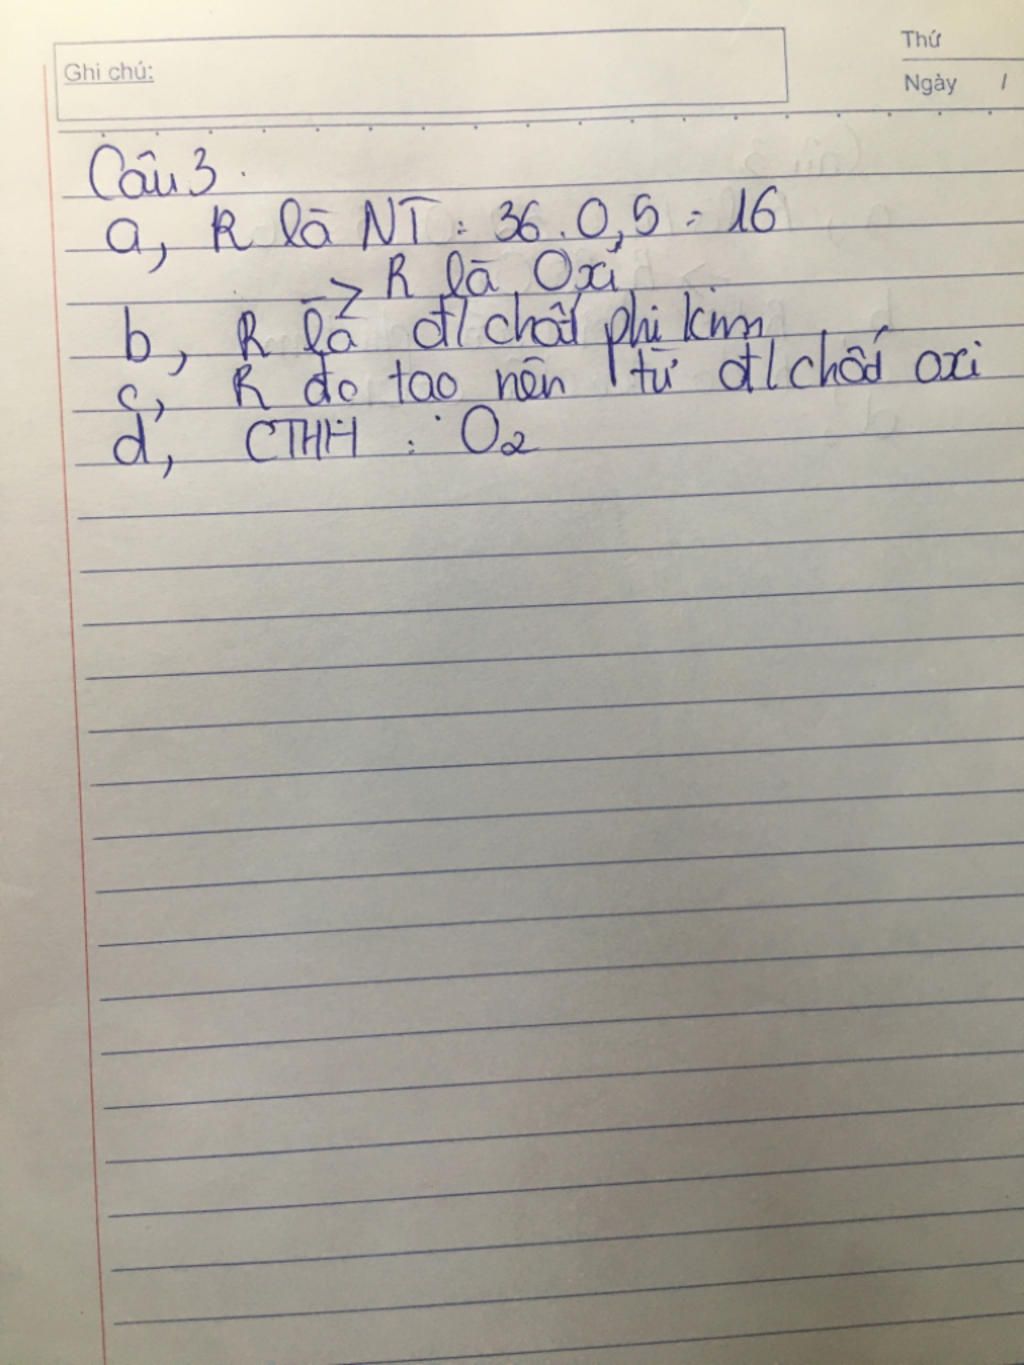 Ghi chú:
Thứ
Ngày /
Câu 3.
a, R là NT : 36.0,5 = 16
-> R là Oxi
b, R là đ/chất phi kim
c, R do tạo nên từ đ/chất oxi
d, CTHH : O₂